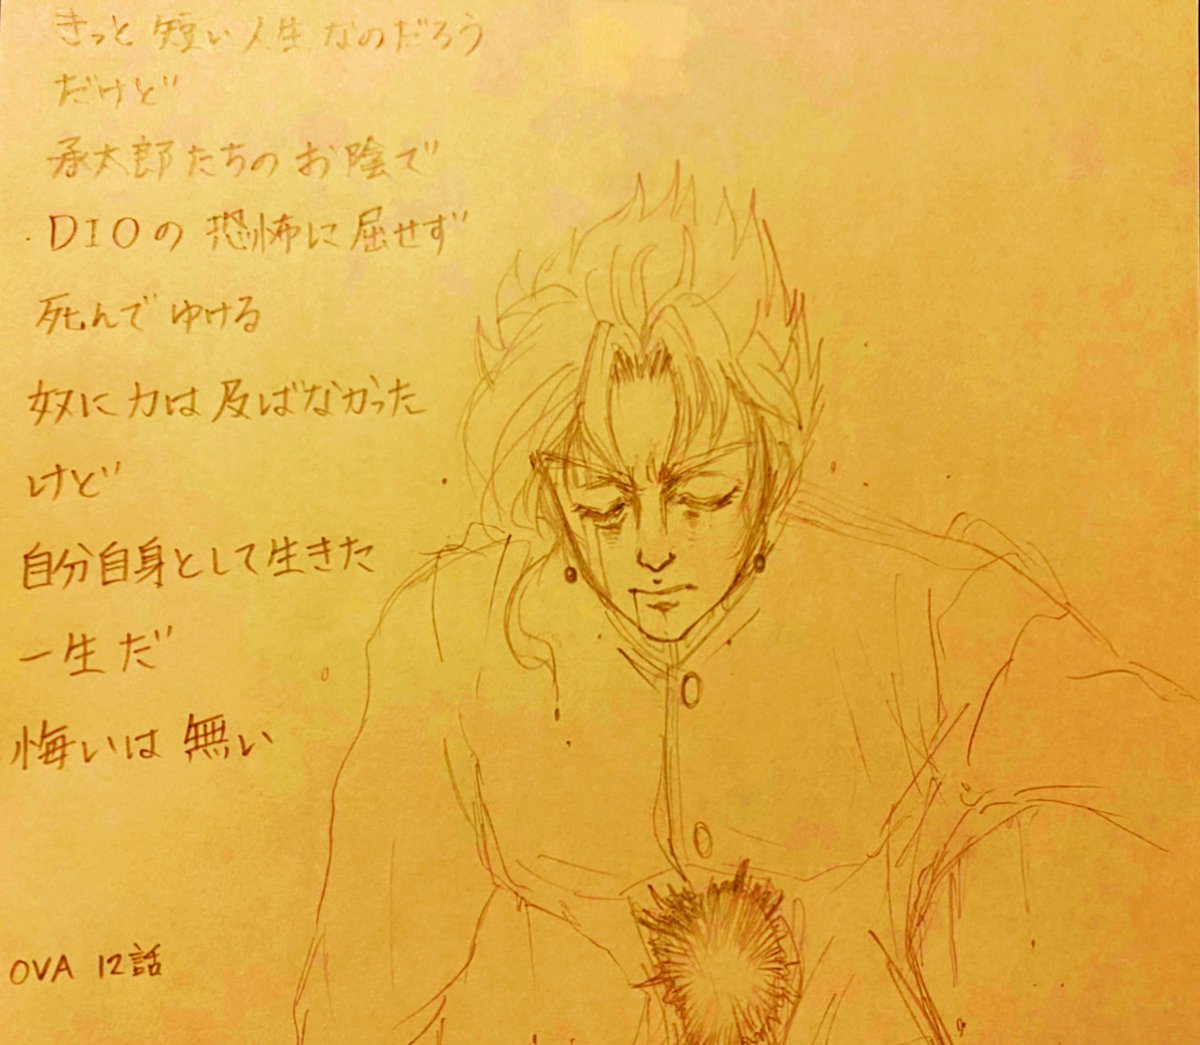 きっと短い人生なのだろう
だけど
承太郎たちのお陰で
DIOの恐怖に屈せず
死んでゆける
奴に力は及ばなかった
けど
自分自身として生きた
一生だ
悔いは無い
OVA 12話